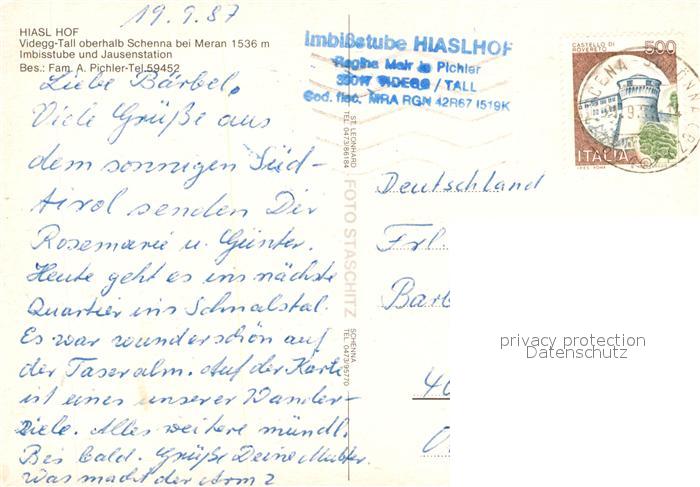 19.9.87
HIASL HOF
Videgg-Tall oberhalb Schenna bei Meran 1536 m
Imbisstube und Jausenstation
Bes.: Fam. A. Pichler-Tel.59452
Imbißstube HIASLHOF
Regina Mair in Pichler
39017 VIDEGG / TALL
Cod. fisc. MRA RGN 42R67 I519K
CASTELLO DI ROVERETO
500
ITALIA
Liebe Bärbel,
Viele Grüße aus
dem sonnigen Süd-
tirol senden Dir
Rosemarie u. Günter.
Heute geht es ins nächste
Quartier ins Schnalstal.
Es war wunderschön auf
der Taseralm. Auf der Karte
ist eines unserer Wander-
ziele. Alles weitere mündl.
Bis bald. Grüße Deine Mutter.
Was macht der Arm?
ST. LEONHARD
TEL. 0473/86184
FOTO STASCHITZ
SCHENNA
TEL. 0473/95770
Deutschland
Frl.
Barb
40
privacy protection
Datenschutz